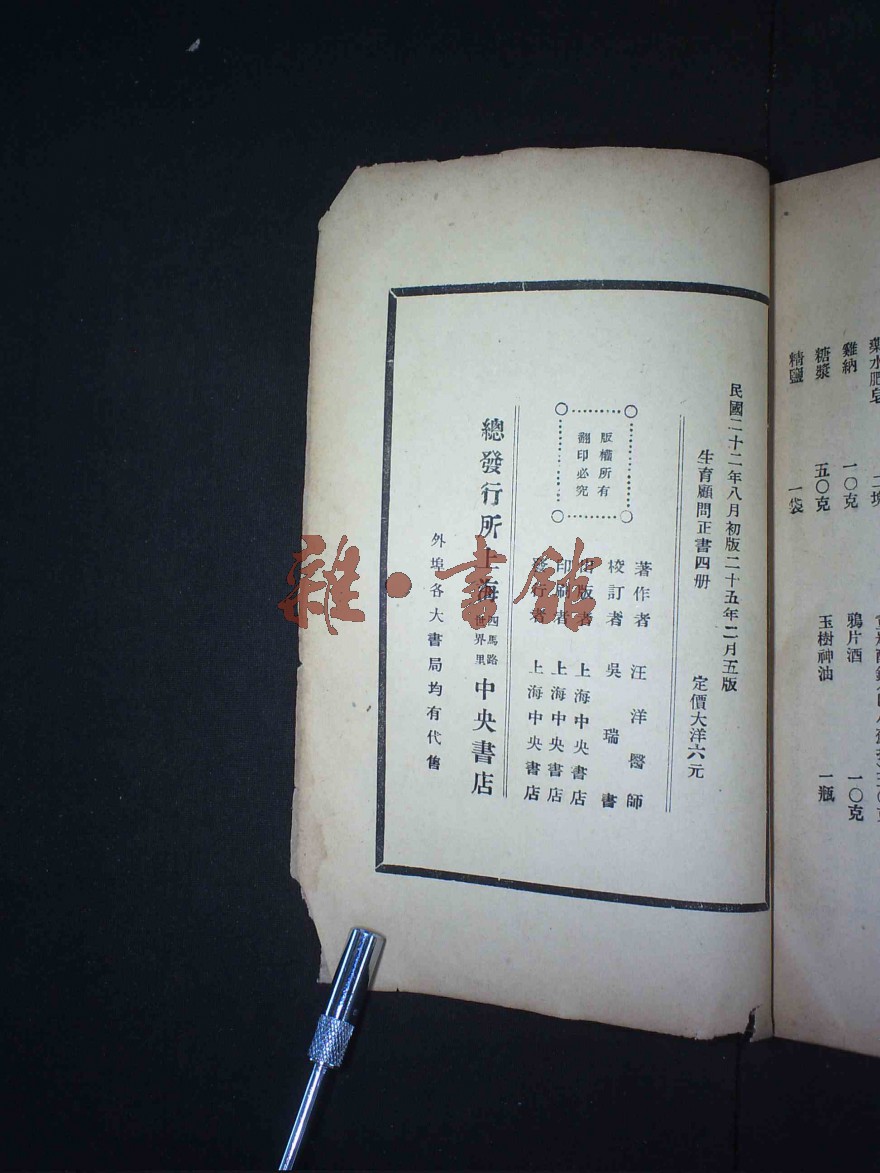 藥水肥皂 二塊
雞納 一〇克 鴉片酒 一〇克
糖漿 五〇克 玉樹神油 一瓶
精鹽 一袋
民國二十二年八月初版二十五年二月五版
生育顧問正書四册 定價大洋六元
版權所有
翻印必究
著作者 汪洋醫師
校訂者 吳瑞書
出版者 上海中央書店
印刷者 上海中央書店
發行者 上海中央書店
總發行所上海四馬路世界里中央書店
外埠各大書局均有代售
雜·書館